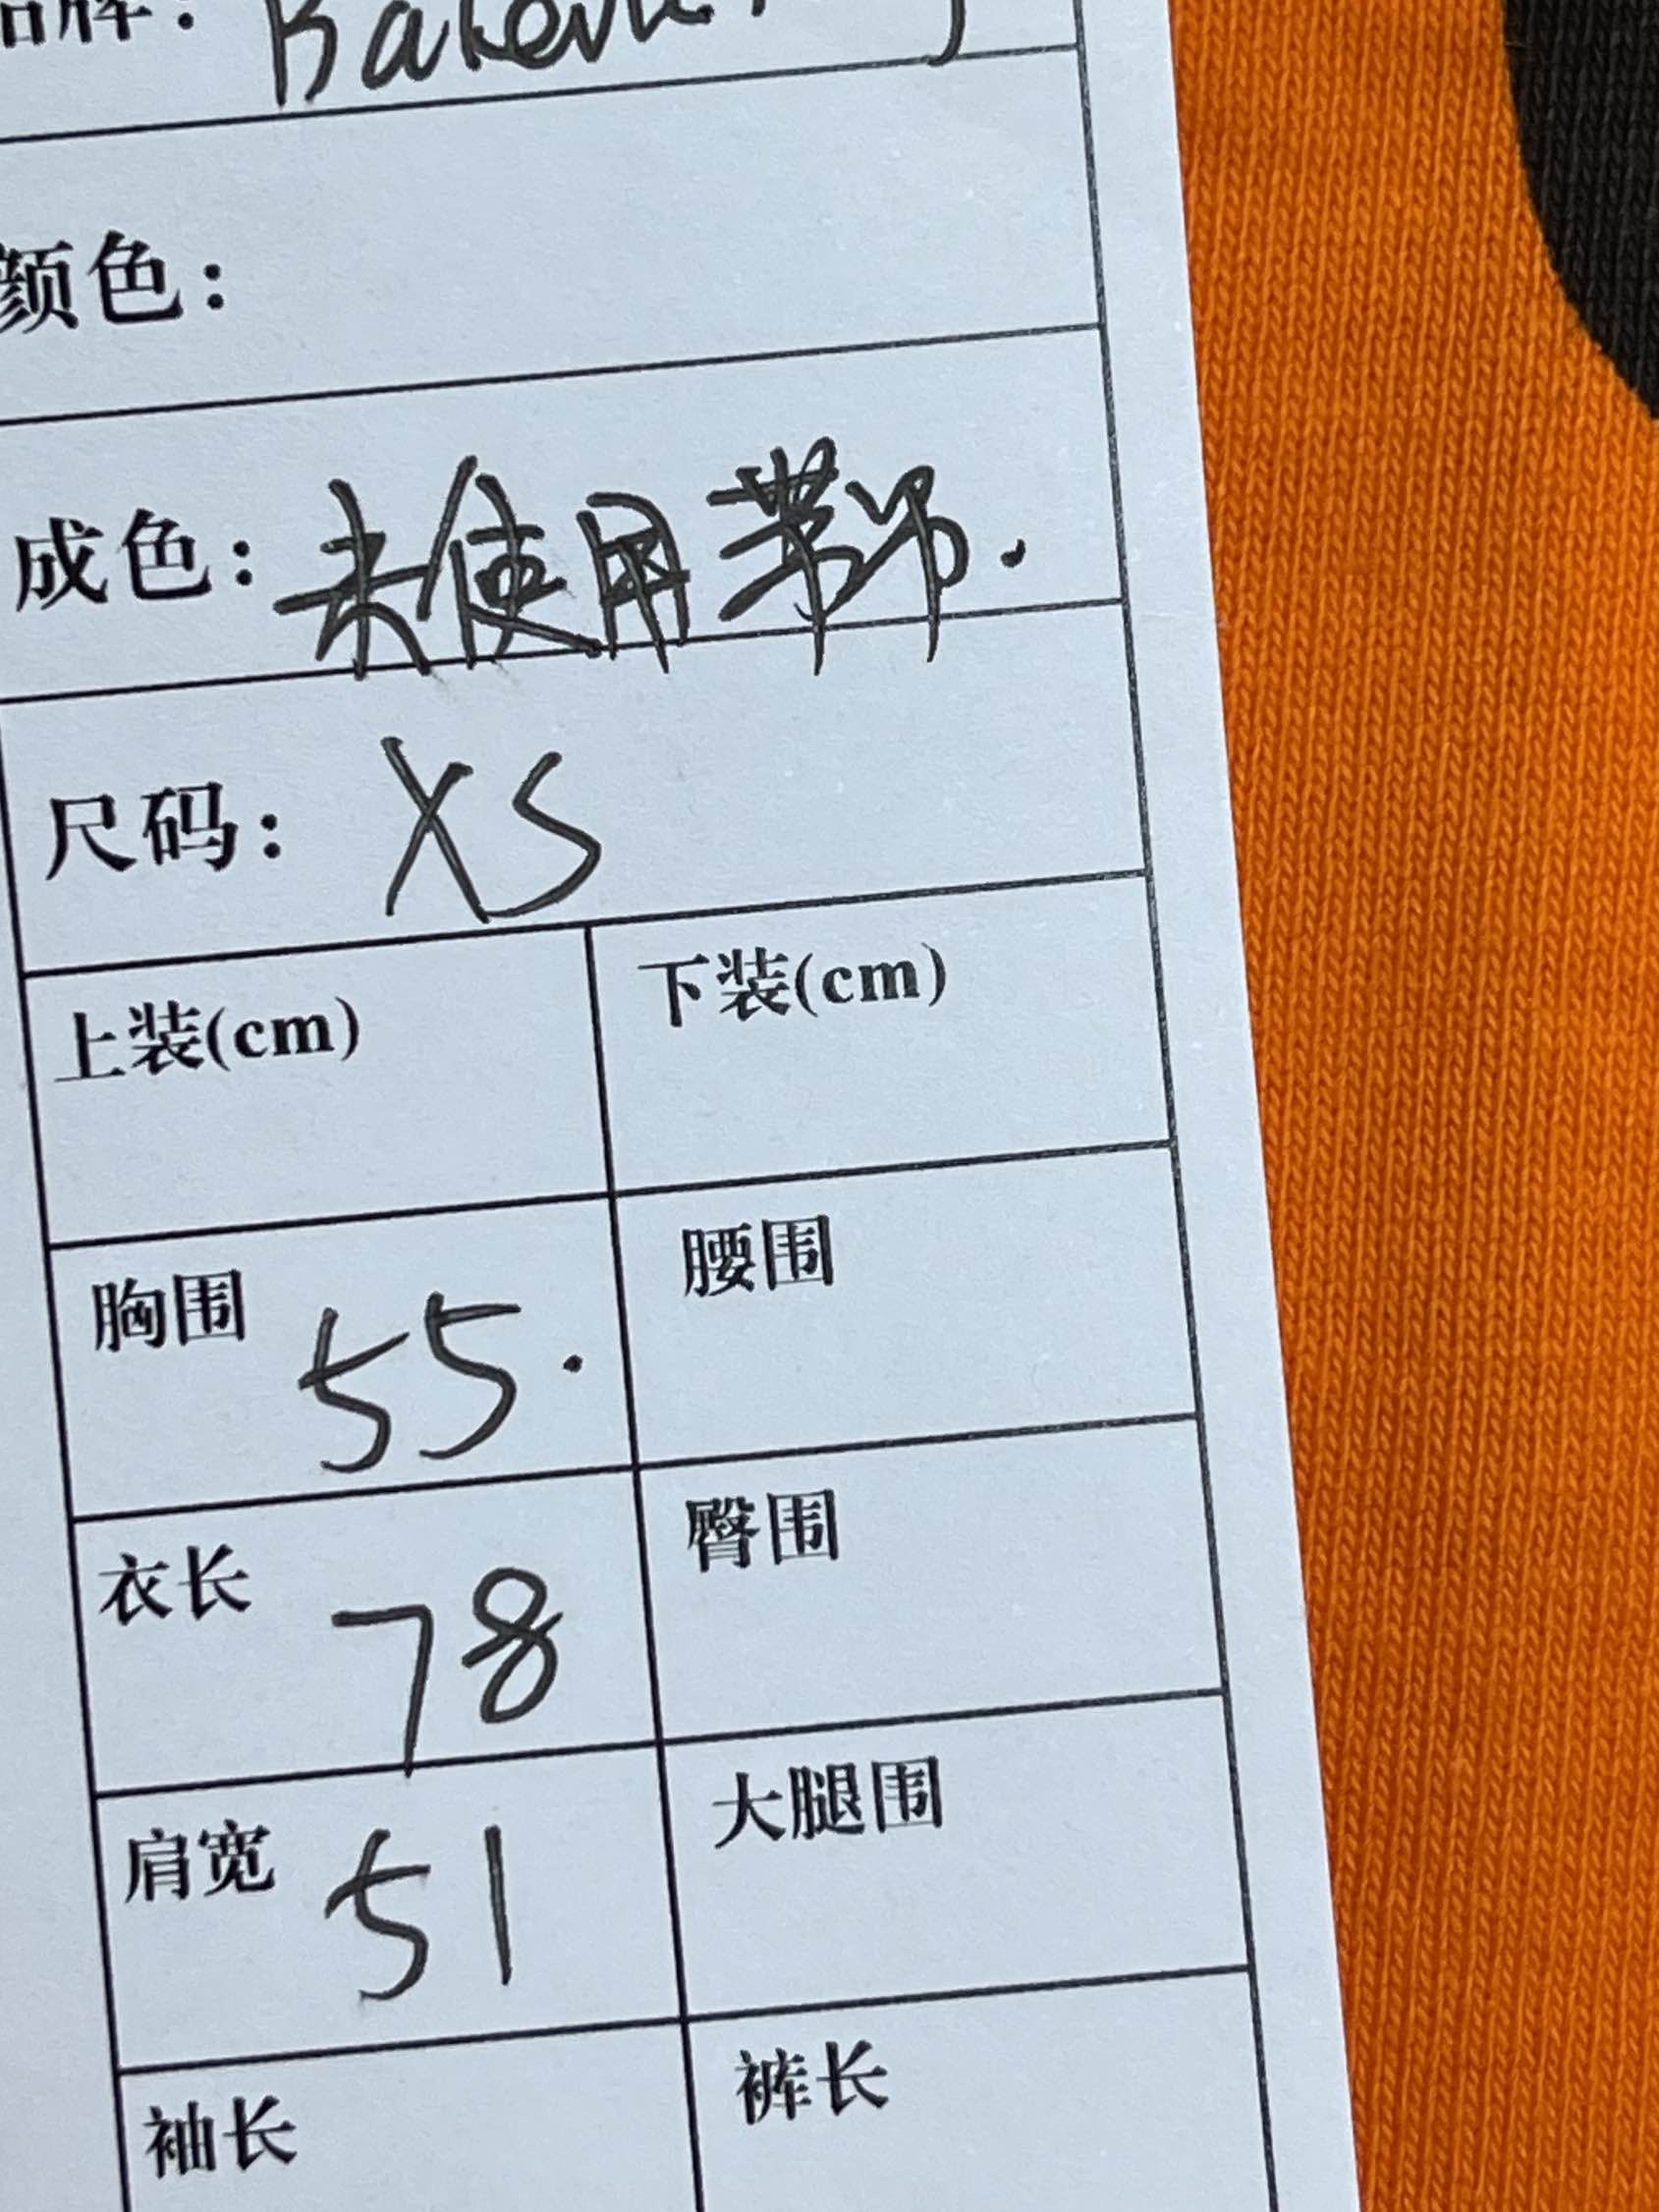 颜色：
成色：未使用带吊.
尺码：XS
上装(cm) 下装(cm)
胸围 55. 腰围
衣长 78 臀围
肩宽 51 大腿围
袖长 裤长